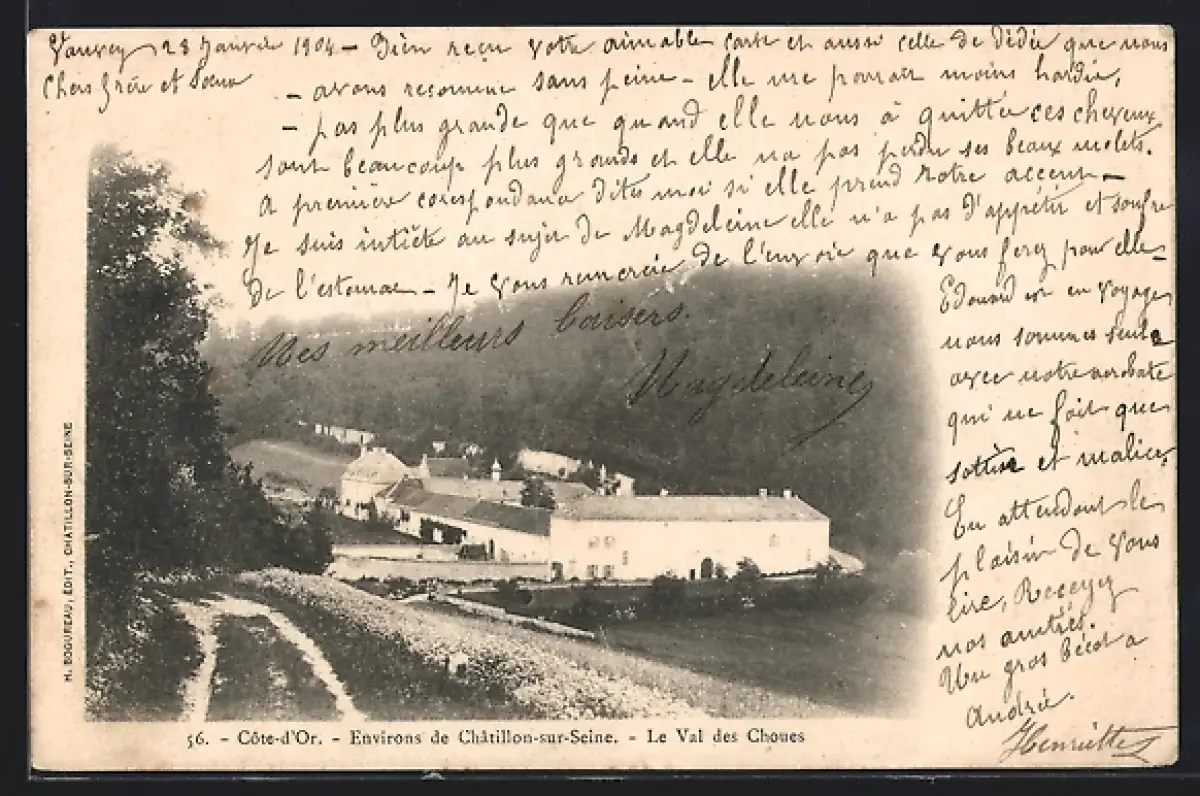 Vanvey 28 Janvier 1904 – Bien reçu votre aimable carte et aussi celle de Dédée que nous
Chers Frère et Sœur
– avons reconnue sans peine – elle me parrait moins hardie,
– pas plus grande que quand elle nous à quittée ces cheveux
sont beaucoup plus grands et elle na pas perdu ses beaux molets.
A première corespondance dites moi si elle prend notre accent –
Je suis intiète au sujet de Magdeleine elle n'a pas d'appétit et soufre
de l'estomac – Je vous remercie de l'envoie que vous ferez pour elle –
Edouard est en voyage
nous sommes seule
avec notre
qui ne fait que
sottise et malice,
En attendant le
plaisir de vous
lire, Recevez
nos amitiés.
Un gros bécot a
André.
Henriette
Mes meilleurs baisers.
Magdeleine
H. ESQUREAU, ÉDIT., CHATILLON-SUR-SEINE
56. - Côte-d'Or. - Environs de Châtillon-sur-Seine. - Le Val des Choues